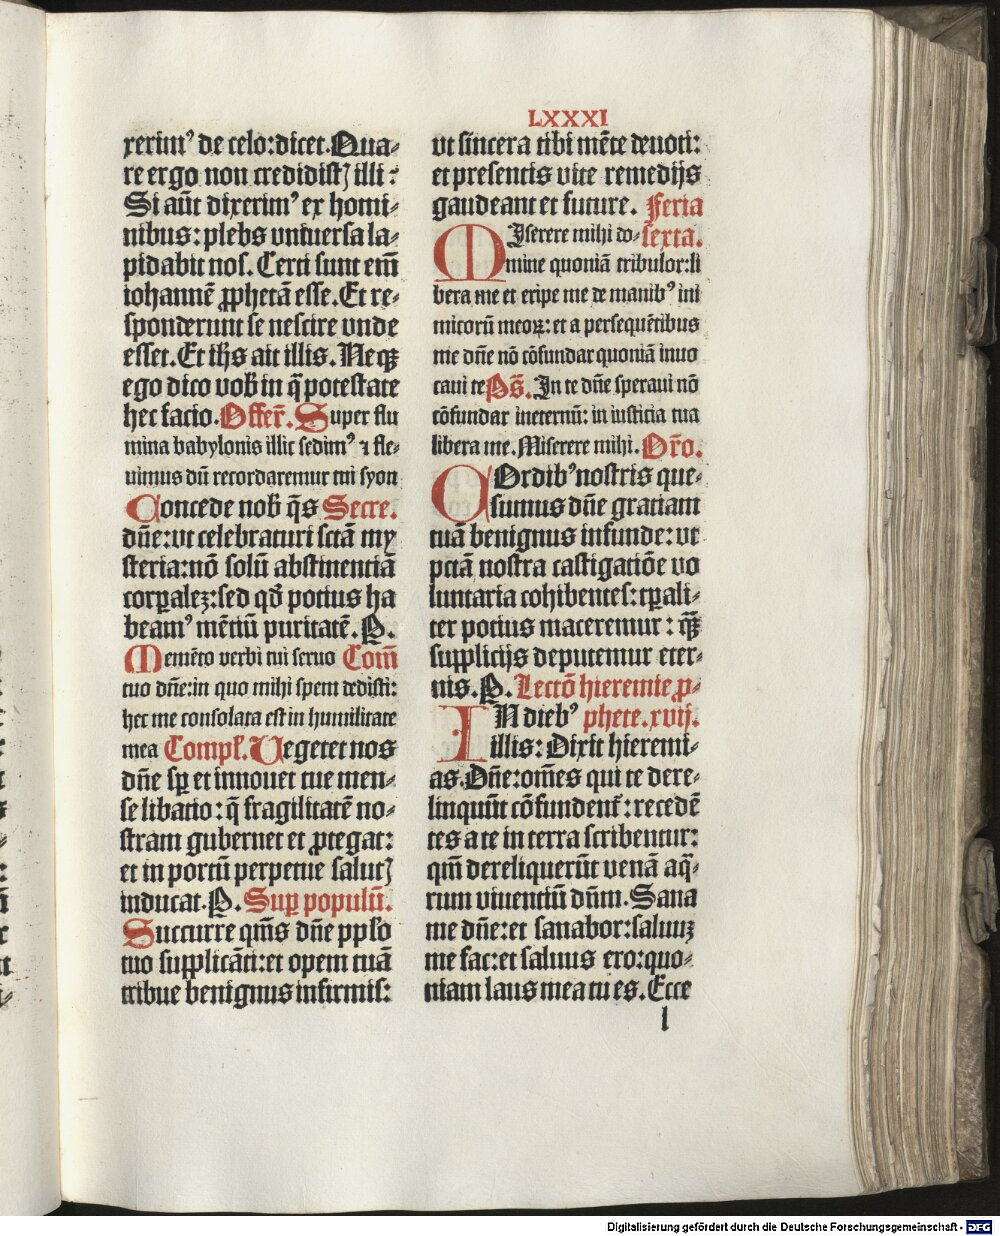 LXXXI
xerimꝰ de celo: dicet. Qua⸗
re ergo non credidistꝭ illi?
Si aūt dixerimꝰ ex homi⸗
nibus: plebs vniuersa la⸗
pidabit nos. Certi sunt em̄
iohannē ꝓphetā esse. Et re⸗
sponderunt se nescire vnde
esset. Et ih̄s ait illis. Neqꝫ
ego dico vob̄ in q̄ potestate
hec facio. Offer̄. Super flu
mina babylonis illic sedimꝰ ⁊ fle⸗
uimus dū recordaremur tui syon
Concede nob̄ q̄s Secre.
dn̄e: vt celebraturi sctā my
steria: nō solū abstinentiā
corꝑalez: sed qd̄ potius ha
beamꝰ mētiū puritatē. P.
Memēto verbi tui seruo Com̄
tuo dn̄e: in quo mihi spem dedisti:
hec me consolata est in humilitate
mea Compl̄. Uegetet nos
dn̄e sꝑ et innouet tue men⸗
se libatio: q̄ fragilitatē no⸗
stram gubernet et ꝓtegat:
et in portū perpetue salutꝭ
inducat. P. Suꝑ populū.
Succurre qm̄s dn̄e ppl̄o
tuo supplicāti: et opem tuā
tribue benignus infirmis:
vt sincera tibi mēte deuoti:
et presentis vite remedijs
gaudeant et future. Feria
MIserere mihi do⸗ sexta.
mine quoniā tribulor: li
bera me et eripe me de manibꝰ ini
micorū meoꝝ: et a persequētibus
me dn̄e nō cōfundar quoniā inuo
caui te Ps̄. In te dn̄e speraui nō
cōfundar ineternū: in iusticia tua
libera me. Miserere mihi. Or̄o.
COrdibꝰ nostris que⸗
sumus dn̄e gratiam
tuā benignus infunde: vt
pctā nostra castigatiōe vo
luntaria cohibentes: tꝑali⸗
ter potius maceremur: qꝫ̄
supplicijs deputemur eter⸗
nis. P. Lectō hieremie ꝓ⸗
IN diebꝰ phete. xvij.
illis: Dixit hieremi⸗
as. Dn̄e: om̄es qui te dere⸗
linquūt cōfundent᷑: recedē
tes a te in terra scribentur:
qm̄ dereliquerūt venā aq̄⸗
rum viuentiū dn̄m. Sana
me dn̄e: et sanabor: saluuꝫ
me fac: et saluus ero: quo⸗
niam laus mea tu es. Ecce
l
Digitalisierung gefördert durch die Deutsche Forschungsgemeinschaft - DFG